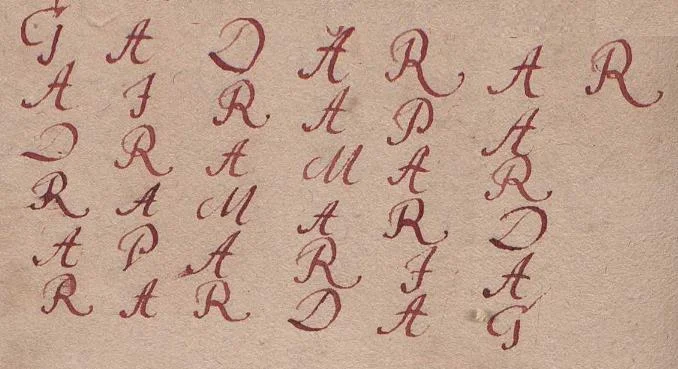 G A D A R A R
A F R A P A
D R A M A R
R A M A R D
A P A R F A
R A R D A G